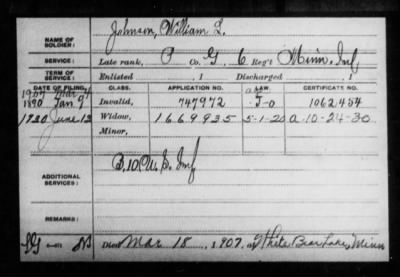 NAME OF SOLDIER: Johnson, William L.
SERVICE: Late rank, P Co. G, 6 Reg't Minn. Inf
TERM OF SERVICE: Enlisted , 1 Discharged , 1
DATE OF FILING. CLASS. APPLICATION NO. LAW. CERTIFICATE NO.
1907 Mar
1890 Jan 9 Invalid, 747972 J-0 1062454
1920 June 12 Widow, 1669935 5-1-20 a-10-24-30
Minor,
ADDITIONAL SERVICES: B, 10 U.S. Inf
REMARKS:
Died Mar 18, 1907, at White Bear Lake, Minn